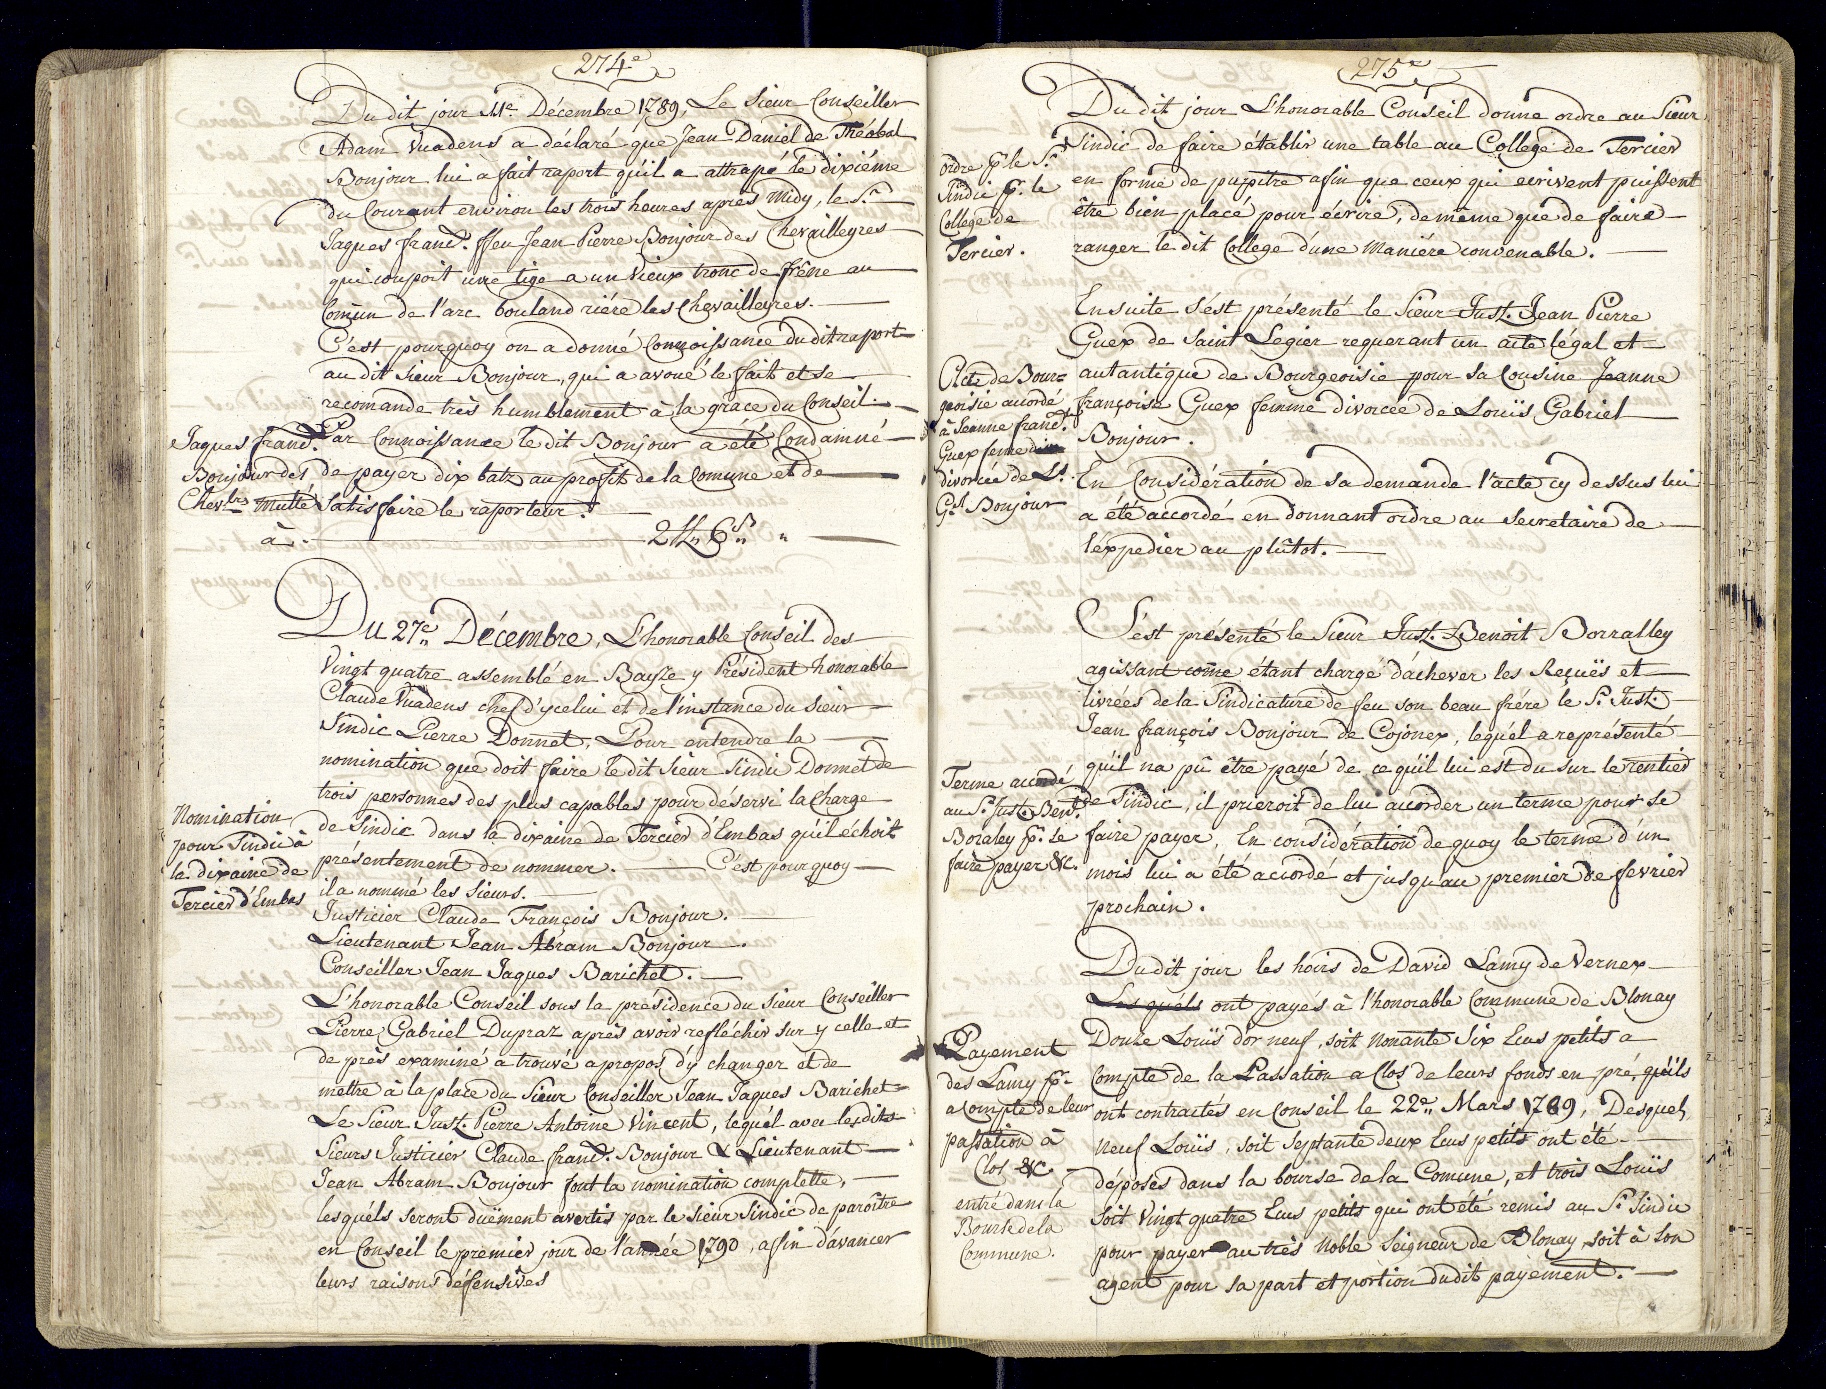 274e
Du dit jour 11e. Décembre 1789, Le Sieur Conseiller
Adam Vuadens a déclaré que Jean Daniel de Théobal
Bonjour lui a fait raport qu'il a attrapé le dixiéme
du Courant environ les trois heures après Midy, le Sr.
Jaques franc̃. ffeu Jean Pierre Bonjour des Chevailleyres
qui coupoit une tige a un Vieux tronc de frêne au
Com̃un de l'arc bouland riére les Chevailleyres.
C'est pourquoy on a donné Connoissance du dit raport
au dit Sieur Bonjour, qui a avoué le fait et se
recomande très humblement à la grace du Conseil.
Par Connoissance le dit Bonjour a été Condamné
de payer dix batz au profit de la Comune et de
satisfaire le raporteur.
2 ff,, 6 s,, "
Jaques franc̃.
Bonjour des
Chev.lres Multé
à.
Du 27e,, Décembre, L'honorable Conseil des
Vingt quatre assemblé en Baysse y Président honorable
Claude Vuadens chef d'ycelui et de l'instance du Sieur
Sindic Pierre Donnet, Pour entendre la
nomination que doit faire le dit Sieur Sindic Donnet de
trois personnes des plus capables pour déservi la Charge
de Sindic dans la dixaine de Tercier d'Embas qu'il échoit
présentement de nommer. C'est pourquoy
il a nommé les Sieurs.
Justicier Claude François Bonjour.
Lieutenant Jean Abram Bonjour.
Conseiller Jean Jaques Barichet.
L'honorable Conseil sous la présidence du Sieur Conseiller
Pierre Gabriel Dupraz après avoir refléchir sur y celle et
de près examiné a trouvé apropos d'y changer et de
mettre à la place du Sieur Conseiller Jean Jaques Barichet
Le Sieur Just. Pierre Antoine Vincent, lequél avec lesdits
Sieurs Justicier Claude franc̃. Bonjour & Lieutenant
Jean Abram Bonjour font la nomination complette,
lesquéls seront duëment avertis par le Sieur Sindic de paroître
en Conseil le premier jour de l'année 1790, afin d'avancer
leurs raisons défensives
Nomination
pour Sindic à
la dixaine de
Tercier d'Embas
275e
Du dit jour L'honorable Conseil donne ordre au Sieur
Sindic de faire établir une table au College de Tercier
en forme de pupître afin que ceux qui ecrivent puissent
être bien placé pour écrire, de même que de faire
ranger le dit College d'une Maniére convenable.
ordre pr. le Sr.
Sindic pr. le
College de
Tercier.
Ensuite s'est présenté le Sieur Just. Jean Pierre
Guex de Saint Legier requerant un acte légal et
autantique de Bourgeoisie pour sa Cousine Jeanne
françoise Guex femme divorcée de Louïs Gabriel
Bonjour.
En Considération de sa demande l'acte cy dessus lui
a été accordé en donnant ordre au Secretaire de
l'expedier au plûtot.
Acte de Bour=
geoisie accordé
à Jeanne franc̃.
Guex feme
divorcée de Ls.
Gel Bonjour
S'est présenté le Sieur Just. Benoit Borralley
agissant com̃e étant chargé d'achever les Reçuës et
livrées de la Sindicature de feu son beau frére le Sr. Just.
Jean françois Bonjour de Cojonex, lequél a représenté
qu'il na pû être payé de ce qu'il lui est du sur le rentier
de Sindic, il prieroit de lui accorder un terme pour se
faire payer, En considération de quoy le terme d'un
mois lui a été accordé et jusqu'au premier de fevrier
prochain.
Terme accordé
au Sr. Just. Ben̂t.
Boraley pr. le
faire payer &c.
Dudit jour les hoirs de David Lamy de Vernex
Les quéls ont payés à l'honorable Commune de Blonay
Douze Louïs d'or neuf, soit Nonante Six Ecus petits a
Compte de la Passation a Clos de leurs fonds en pré, qu'ils
ont contractés en Conseil le 22e,, Mars 1789, Desquels
Neuf Louïs, soit Septante deux Ecus petits ont été
déposés dans la bourse de la Comune, et trois Louïs
Soit Vingt quatre Ecus petits qui ont été remis au Sr. Sindic
pour payer au très Noble Seigneur de Blonay soit à son
agent pour sa part et portion dudit payement.
Payement
des Lamy pr.
a Compte de leur
passation à
Clos &c.
entré dans la
Bourse de la
Commune.